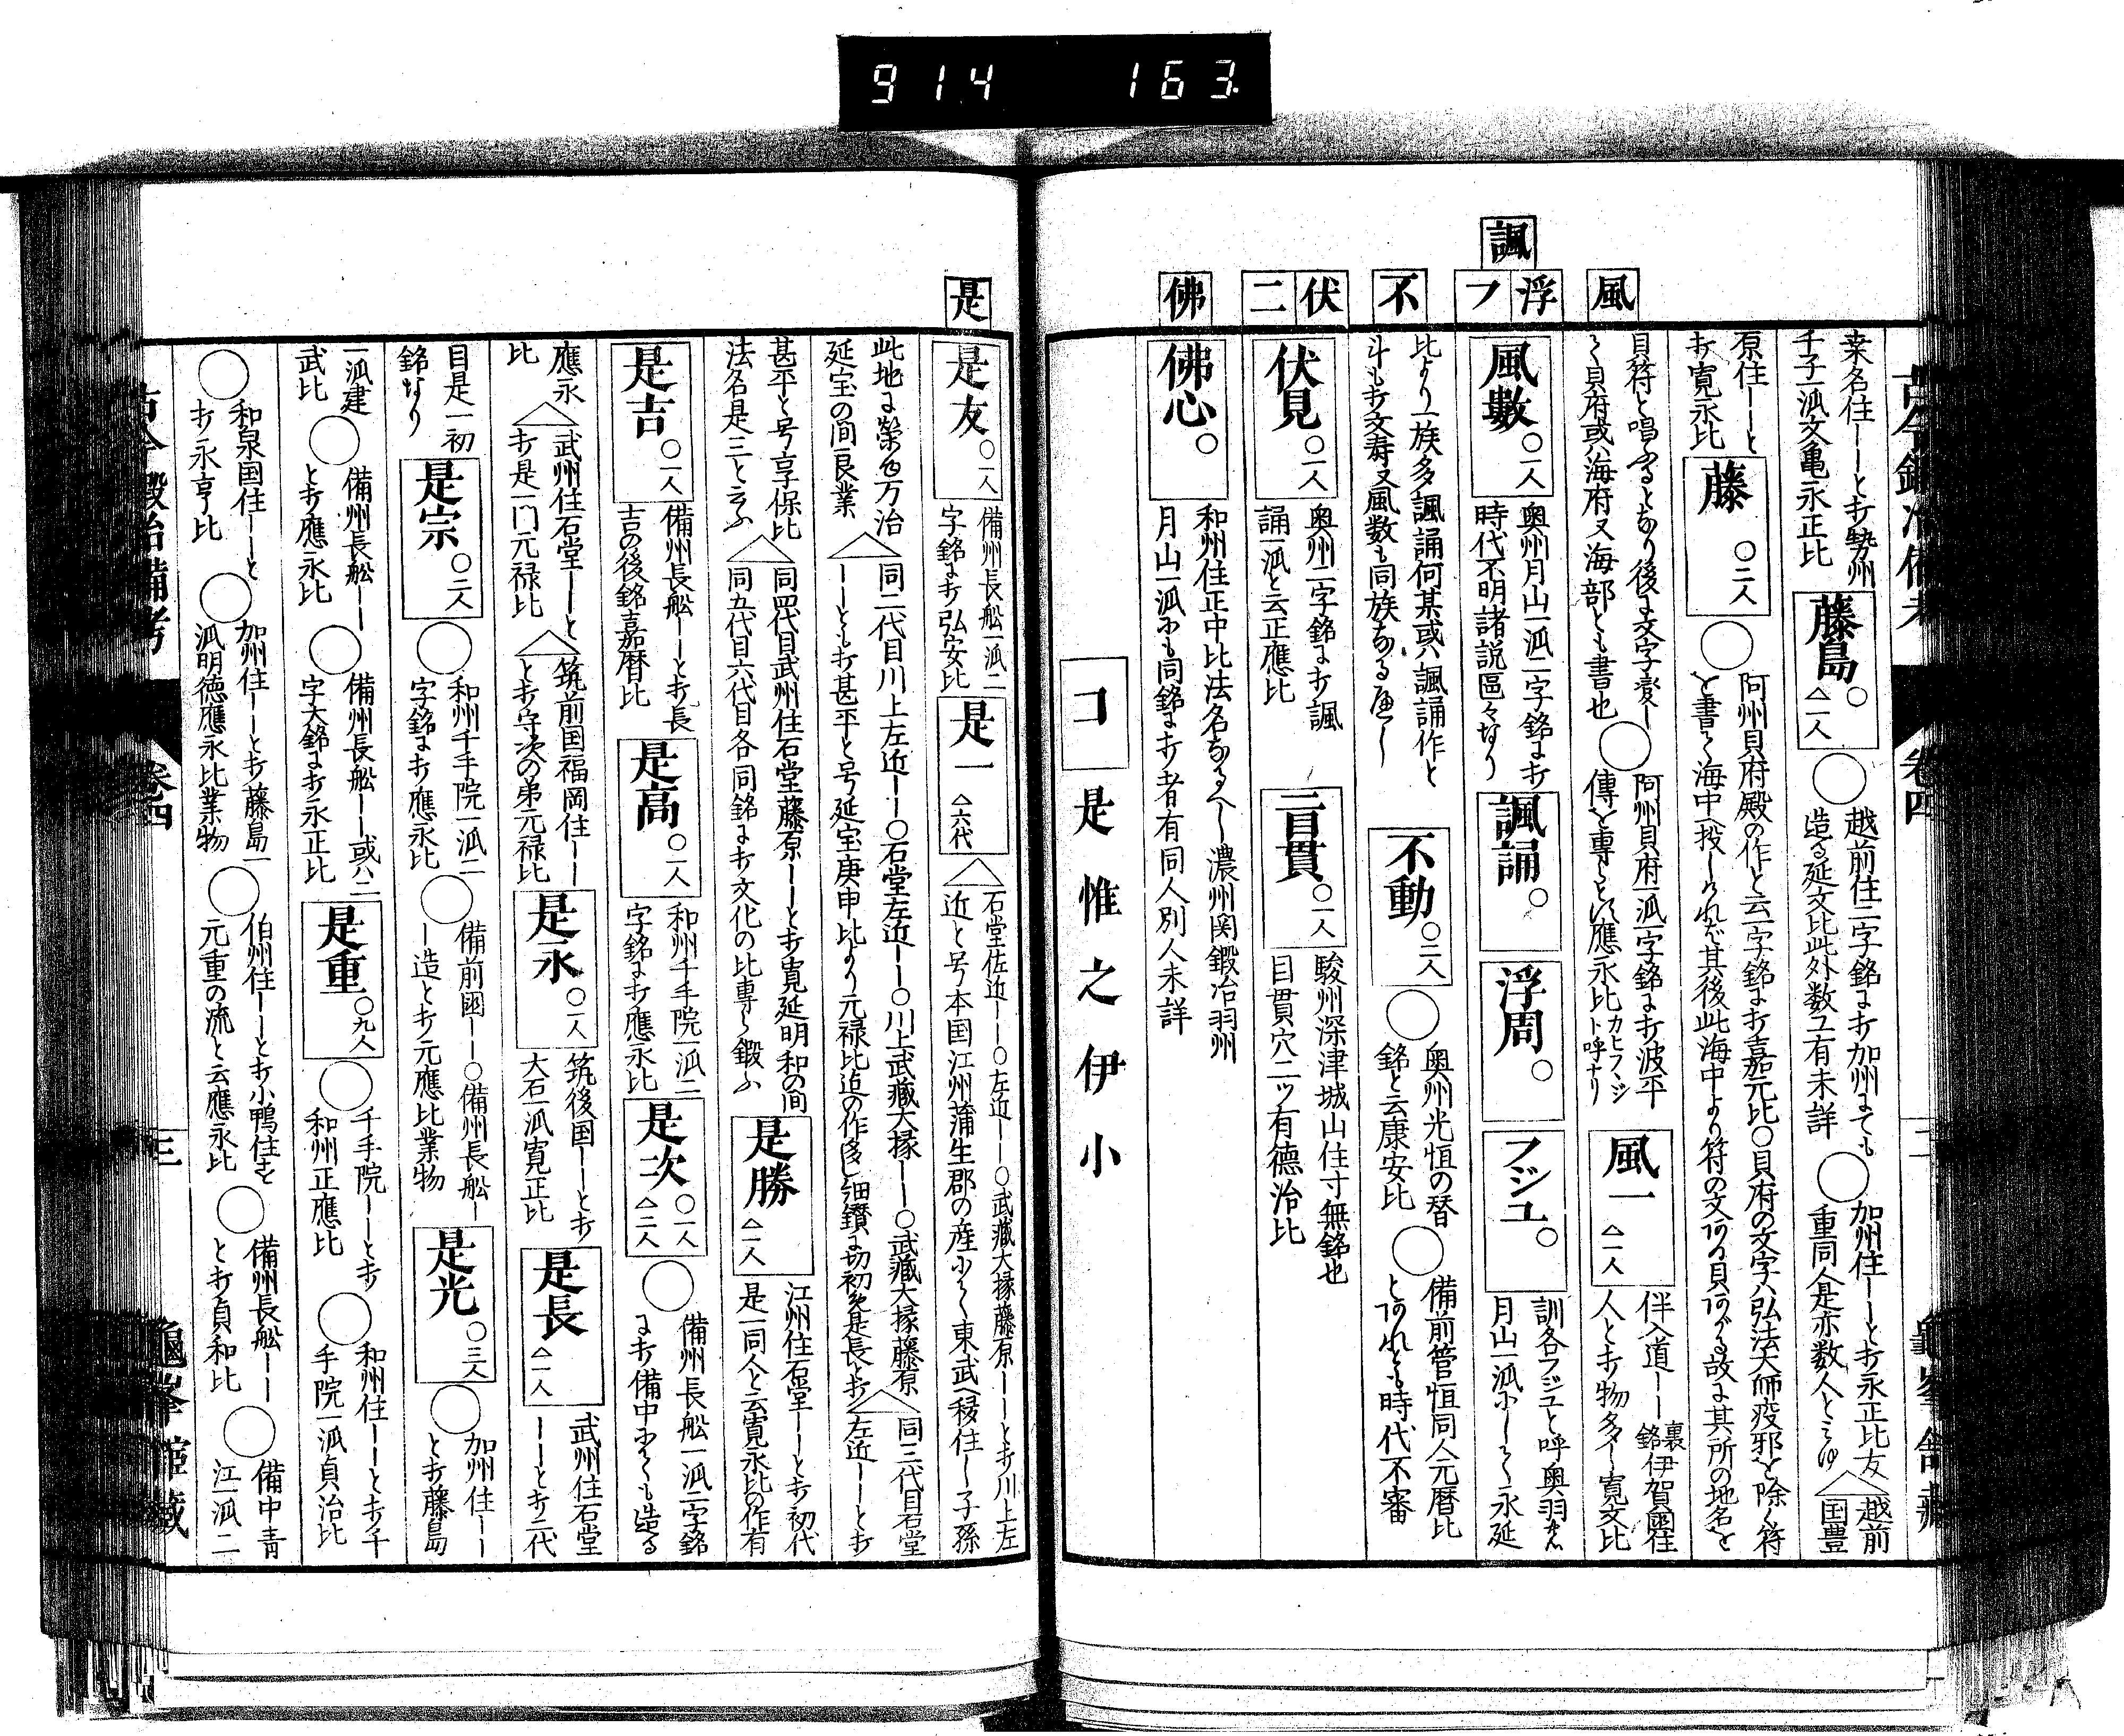 914 163.
諷
風
浮
フ
不
伏
二
佛
桒名住ーーと打勢州
千子一派文亀永正比
藤島。△二人
越前住二字銘に打加州にても
造る延文比此外数工有未詳
加州住ーーと打永正比友
重同人是亦数人とミゆ
越前
国豊
原住ーーと
打寛永比
藤 〇二人
阿州貝府殿の作と云一字銘に打嘉元比〇貝府の文字ハ弘法大師疫邪を除く符
を書て海中へ投しけれど其後此海中より符の文ある貝あがる故に其所の地名を
貝符と唱ふるとなり後に文字変し
て貝府或ハ海府又海部とも書也
阿州貝府一派一字銘に打波平
傳を専らとす應永比カヒフハジト呼ナリ
風一 △一人
伴入道ーー裏銘伊賀國住
人と打物多し寛文比
風數。〇一人
奥州月山一派二字銘に打
時代不明諸説區々なり
諷誦。
浮周。
フジユ。
訓各フジユと呼奥羽
月山一派にして永延
比より一族多諷誦何某或ハ諷誦作と
斗も打文寿又風数も同族なるべし
不動。〇二人
奥州光恒の替
銘と云康安比
備前管恒同人元暦比
とあれとも時代不審
伏見。〇一人
奥州二字銘に打諷
誦一派と云正應比
二百貫。〇一人
駿州深津城山住寸無銘也
目貫穴二ッ有德治比
佛心。
和州住正中比法名なるへし濃州関鍛冶羽州
月山一派にも同銘に打者有同人別人未詳
コ 是惟之伊小
是
是友。〇一人
備州長舩一派二
字銘に打弘安比
是一 △六代
石堂佐近ーー〇左近ーー〇武藏大掾藤原ーーと打川上左
近と号本国江州蒲生郡の産にて東武へ移住し子孫
此地に榮ゆ万治
延宝の間良業
同二代目川上左近ーー〇石堂左近ーー〇川上武藏大掾ーー〇武藏大掾藤原
ーーとも打甚平と号延宝庚申比より元禄比迄の作多し細鑚に切初ゟ是長と打
同三代目石堂
左近ーーと打
甚平と号享保比
法名是三と云ふ
同四代目武州住石堂藤原ーーと打寛延明和の間
同五代目六代目各同銘に打文化の比専ら鍛ふ
是勝 △一人
江州住石堂ーーと打初代
是一同人と云寛永比の作有
是吉。〇一人
備州長舩ーーと打長
吉の後銘嘉暦比
是高。〇一人
和州千手院一派二
字銘に打應永比
是次〇一人△二人
備州長舩一派二字銘
に打備中にても造る
應永
比
武州住石堂ーーと
打是一門元禄比
筑前国福岡住ーー
と打守次の弟元禄比
是永。〇一人
筑後国ーーと打
大石一派寛正比
是長 △一人
武州住石堂
ーーと打二代
目是一初
銘なり
是宗。〇二人
和州千手院一派二
字銘に打應永比
備前國ー〇備州長舩ー
ー造と打元應比業物
是光。〇三人
加州住ーー
と打藤島
一派建
武比
備州長舩ーー
と打應永比
備州長舩ーー或ハ二
字大銘に打永正比
是重。〇九人
千手院ーーと打
和州正應比
和州住ーーと打千
手院一派貞治比
和泉国住ーーと
打永亨比
加州住ーーと打藤島一
派明徳應永比業物
伯州住ーーと打小鴨住を
元重の流と云應永比
備州長舩ーー
と打貞和比
備中青
江一派二
卷四
三